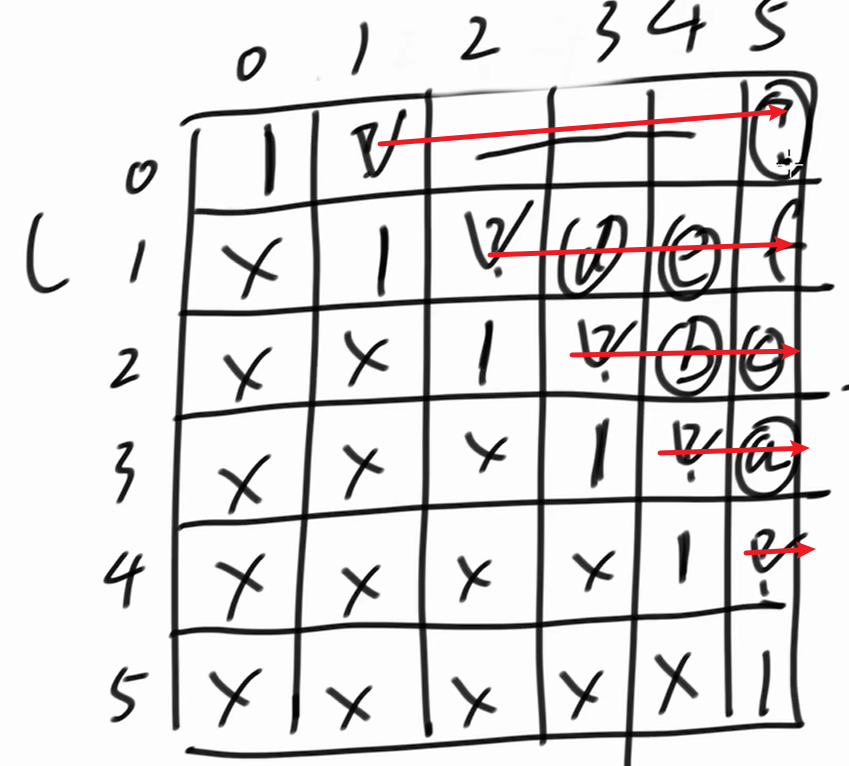 0 1 2 3 4 5
0 1 ? ?
L 1 x 1 ? d e f
2 x x 1 ? b c
3 x x x 1 ? a
4 x x x x 1 ?
5 x x x x x 1